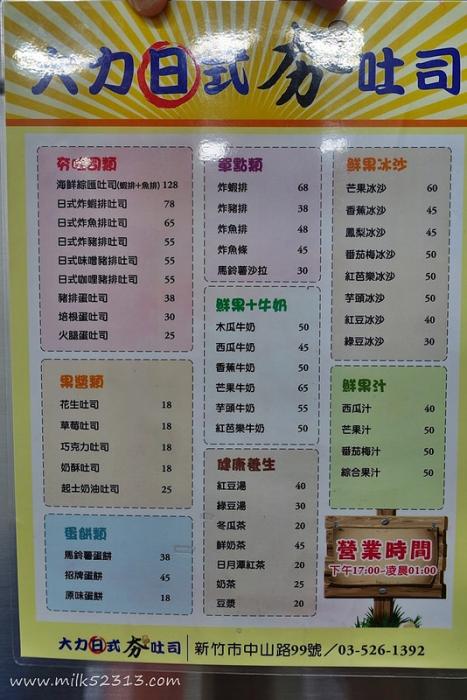 大力日式夯吐司
夯吐司類
海鮮綜匯吐司(蝦排+魚排) 128
日式炸蝦排吐司 78
日式炸魚排吐司 65
日式炸豬排吐司 55
日式味噌豬排吐司 55
日式咖哩豬排吐司 55
豬排蛋吐司 38
培根蛋吐司 30
火腿蛋吐司 25
果醬類
花生吐司 18
草莓吐司 18
巧克力吐司 18
奶酥吐司 18
起士奶油吐司 25
蛋餅類
馬鈴薯蛋餅 38
招牌蛋餅 45
原味蛋餅 18
單點類
炸蝦排 68
炸豬排 38
炸魚排 48
炸魚條 45
馬鈴薯沙拉 30
鮮果十牛奶
木瓜牛奶 50
西瓜牛奶 45
香蕉牛奶 50
芒果牛奶 65
芋頭牛奶 55
紅芭樂牛奶 50
健康養生
紅豆湯 40
綠豆湯 30
冬瓜茶 20
鮮奶茶 45
日月潭紅茶 20
奶茶 25
豆漿 20
鮮果冰沙
芒果冰沙 60
香蕉冰沙 45
鳳梨冰沙 45
番茄梅冰沙 50
紅芭樂冰沙 50
芋頭冰沙 50
紅豆冰沙 40
綠豆冰沙 30
鮮果汁
西瓜汁 40
芒果汁 50
番茄梅汁 50
綜合果汁 50
營業時間
下午17:00~凌晨01:00
大力日式夯吐司 新竹市中山路99號／03-526-1392
www.milk52313.com